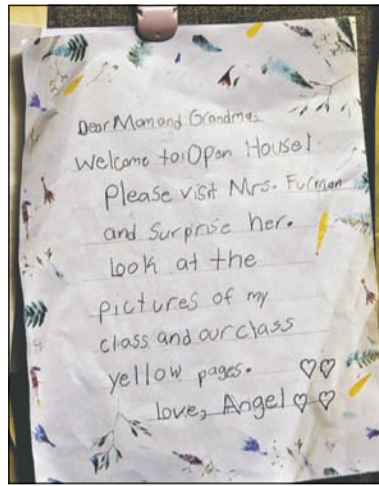 Dear Mom and Grandma,
Welcome to Open House!
Please visit Mrs. Furman
and surprise her.
look at the
pictures of my
class and our class
yellow pages.
love, Angel